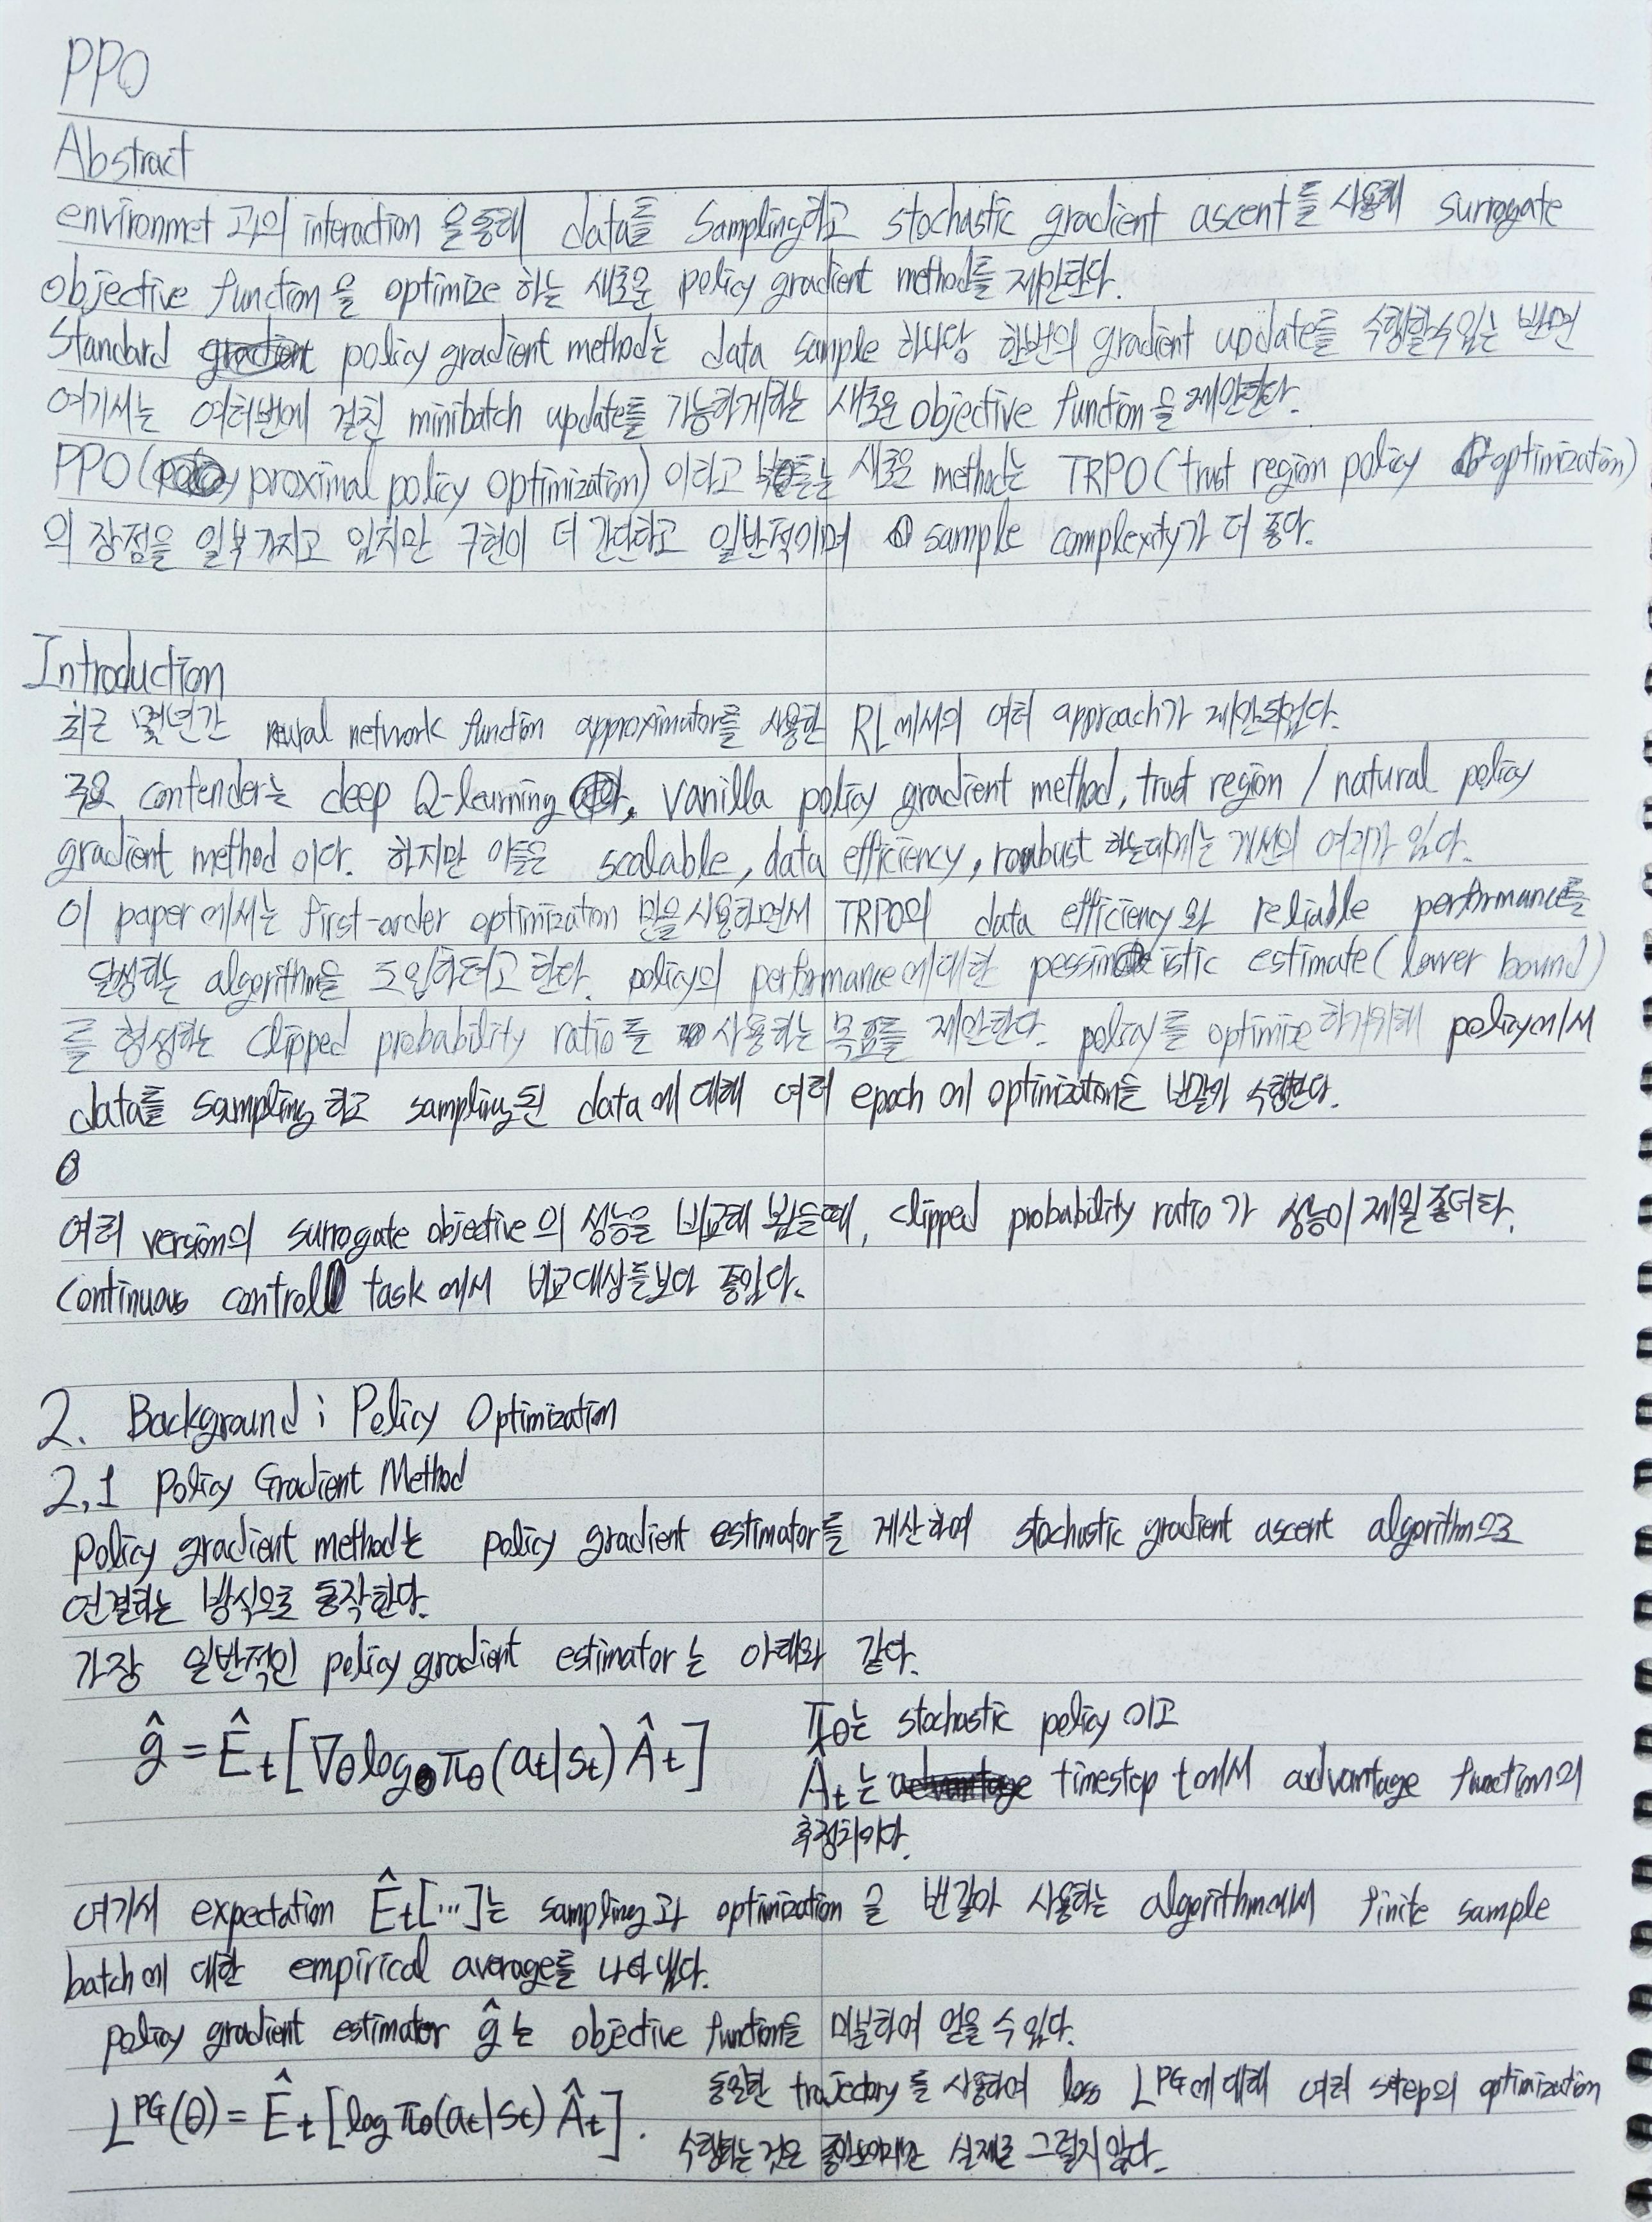 PPO
Abstract
environmet 과의 interaction 을 통해 data를 sampling하고 stochastic gradient ascent를 사용해 surrogate
objective function을 optimize 하는 새로운 policy gradient method를 제안한다.
Standard policy gradient method는 data sample 하나당 한번의 gradient update를 수행할 수 있는 반면
여기서는 여러번에 걸친 minibatch update를 가능하게하는 새로운 objective function을 제안한다.
PPO (proximal policy optimization) 이라고 부르는 새로운 method는 TRPO (trust region policy optimization)
의 장점을 일부 가지고 있지만 구현이 더 간단하고 일반적이며 sample complexity가 더 좋다.
Introduction
최근 몇년간 neural network function approximator를 사용한 RL에서의 여러 approach가 제안되었다.
주요 contender는 deep Q-learning, vanilla policy gradient method, trust region / natural policy
gradient method 이다. 하지만 이들은 scalable, data efficiency, robust 하는데에는 개선의 여지가 있다.
이 paper에서는 first-order optimization 만을 사용하면서 TRPO의 data efficiency와 reliable performance를
달성하는 algorithm을 도입하려고 한다. policy의 performance에 대한 pessimistic estimate (lower bound)
를 형성하는 clipped probability ratio를 사용하는 목표를 제안한다. policy를 optimize 하기위해 policy에서
data를 sampling 하고 sampling된 data에 대해 여러 epoch에 optimization을 번갈아 수행한다.
여러 version의 surrogate objective의 성능을 비교해 봤을때, clipped probability ratio가 성능이 제일 좋더라.
continuous control task에서 비교대상들보다 좋았다.
2. Background : Policy Optimization
2.1 Policy Gradient Method
policy gradient method는 policy gradient estimator를 계산하여 stochastic gradient ascent algorithm으로
연결하는 방식으로 동작한다.
가장 일반적인 policy gradient estimator는 아래와 같다.
ĝ = Ê_t [∇θ log πθ (a_t|s_t) Â_t]
πθ는 stochastic policy 이고
Â_t는 timestep t에서 advantage function의
추정치이다.
여기서 expectation Ê_t[...]는 sampling과 optimization을 번갈아 사용하는 algorithm에서 finite sample
batch에 대한 empirical average를 나타낸다.
policy gradient estimator ĝ는 objective function을 미분하여 얻을 수 있다.
L^PG(θ) = Ê_t [log πθ(a_t|s_t) Â_t].
동일한 trajectory를 사용하여 loss L^PG에 대해 여러 step의 optimization
수행하는 것은 좋아보이지만 실제로 그렇지 않다.